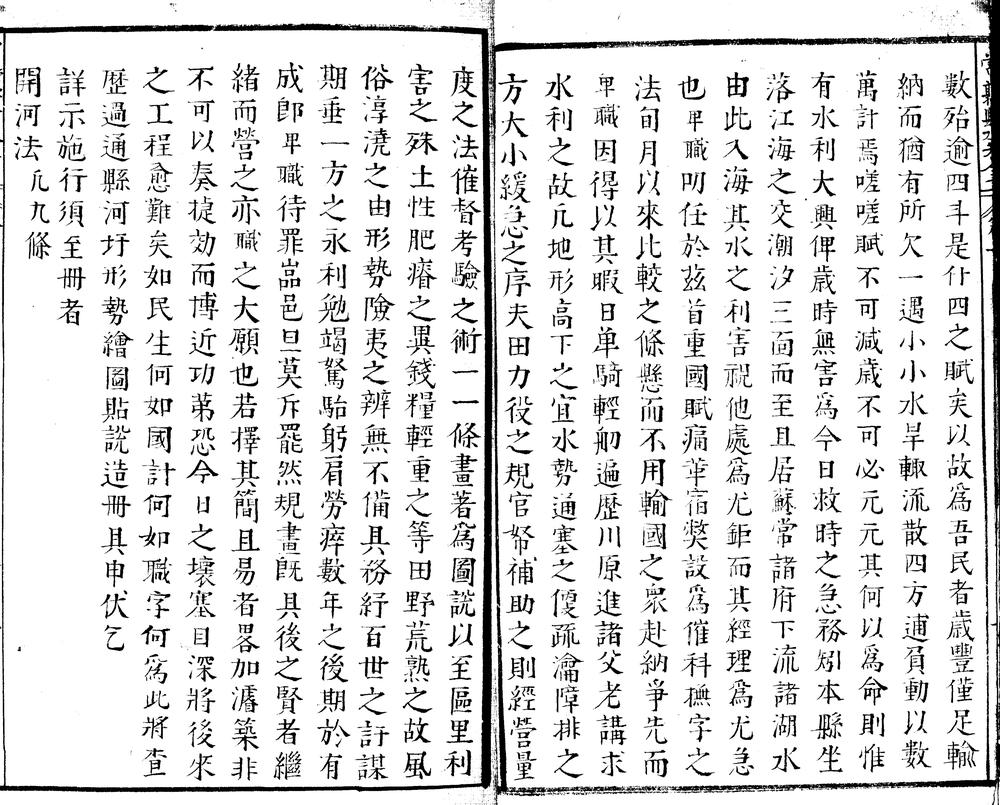 數殆逾四斗是什四之賦矣以故爲吾民者歲豐僅足輸
納而猶有所欠一遇小小水旱輙流散四方逋負動以數
萬計焉嗟嗟賦不可減歲不可必元元其何以爲命則惟
有水利大興俾歲時無害爲今日救時之急務矧本縣坐
落江海之交潮汐三面而至且居蘇常諸府下流諸湖水
由此入海其水之利害視他處爲尤鉅而其經理爲尤急
也卑職叨任於茲首重國賦痛革宿獘設爲催科撫字之
法旬月以來比較之條懸而不用輸國之眾赴納爭先而
卑職因得以其暇日单騎輕舠遍歷川原進諸父老講求
水利之故凡地形高下之宜水勢通塞之優疏瀹障排之
方大小緩急之序夫田力役之規官帑補助之則經營量
度之法催督考驗之術一一條畫著爲圖說以至區里利
害之殊土性肥瘠之異錢糧輕重之等田野荒熟之故風
俗淳澆之由形勢險夷之辨無不備具務紓百世之訏謀
期垂一方之永利勉竭駑駘躬肩勞瘁數年之後期於有
成卽卑職待罪嵓邑旦莫斥罷然規畫旣具後之賢者繼
緒而營之亦職之大願也若擇其簡且易者畧加濬築非
不可以奏捷効而博近功苐恐今日之壞塞目深將後來
之工程愈難矣如民生何如國計何如職字何爲此將查
歷過通縣河圩形勢繪圖貼說造冊具申伏乞
詳示施行須至冊者
開河法 凡九條